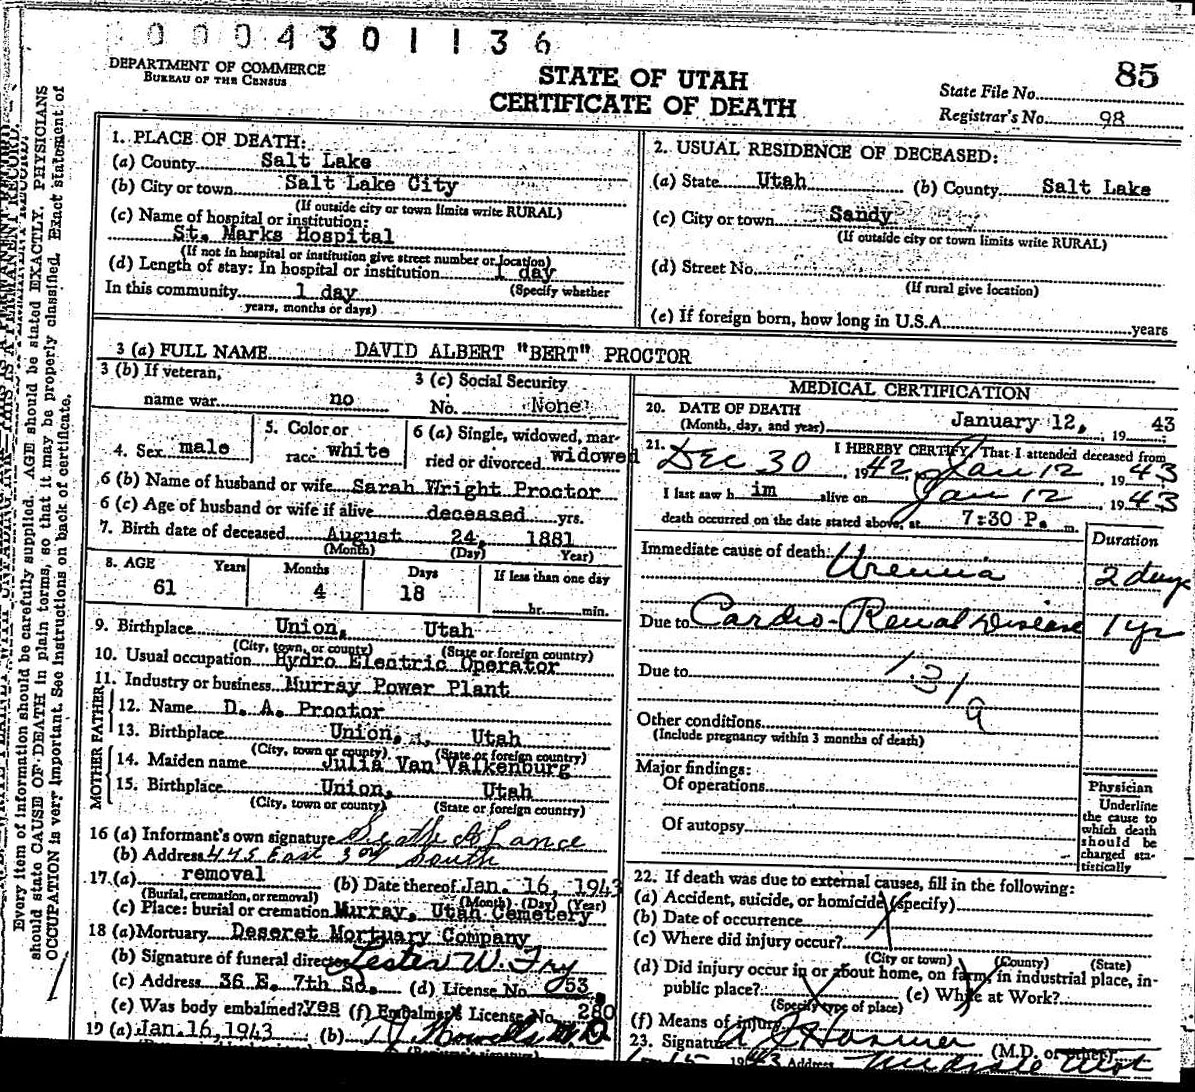 0004301136
DEPARTMENT OF COMMERCE
BUREAU OF THE CENSUS
STATE OF UTAH
CERTIFICATE OF DEATH
85
State File No.
Registrar's No. 98
1. PLACE OF DEATH:
(a) County Salt Lake
(b) City or town Salt Lake City
(If outside city or town limits write RURAL)
(c) Name of hospital or institution:
St. Marks Hospital
(If not in hospital or institution give street number or location)
(d) Length of stay: In hospital or institution 1 day
(Specify whether
In this community 1 day
years, months or days)
2. USUAL RESIDENCE OF DECEASED:
(a) State Utah (b) County Salt Lake
(c) City or town Sandy
(If outside city or town limits write RURAL)
(d) Street No.
(If rural give location)
(e) If foreign born, how long in U.S.A. years
3 (a) FULL NAME DAVID ALBERT "BERT" PROCTOR
3 (b) If veteran,
name war no
3 (c) Social Security
No. None
4. Sex male
5. Color or
race white
6 (a) Single, widowed, mar-
ried or divorced widowed
6 (b) Name of husband or wife Sarah Wright Proctor
6 (c) Age of husband or wife if alive deceased yrs.
7. Birth date of deceased August 24, 1881
(Month) (Day) Year)
8. AGE Years Months Days If less than one day
61 4 18 hr. min.
9. Birthplace Union, Utah
(City, town, or county) (State or foreign country)
10. Usual occupation Hydro Electric Operator
11. Industry or business Murray Power Plant
FATHER
12. Name D. A. Proctor
13. Birthplace Union, Utah
(City, town or county) (State or foreign country)
MOTHER
14. Maiden name Julia Van Valkenburg
15. Birthplace Union, Utah
(City, town or county) (State or foreign country)
16 (a) Informant's own signature Lance
(b) Address 445 East 3rd South
17. (a) removal (b) Date thereof Jan. 16, 1943
(Burial, cremation, or removal) (Month) (Day) (Year)
(c) Place: burial or cremation Murray, Utah Cemetery
18 (a) Mortuary Deseret Mortuary Company
(b) Signature of funeral director Lester W. Fry
(c) Address 36 E. 7th So. (d) License No. 53
(e) Was body embalmed? Yes (f) Embalmer's License No. 280
19 (a) Jan.16,1943 (b) M D
MEDICAL CERTIFICATION
20. DATE OF DEATH
(Month, day, and year) January 12, 19 43
21. I HEREBY CERTIFY, That I attended deceased from
Dec 30 19 42, Jan 12, 19 43
I last saw h im alive on Jan 12 19 43
death occurred on the date stated above, at 7:30 P. m.
Duration
Immediate cause of death: Uremia 2 days
Due to Cardio-Renal Disease 1 yr
Due to
131a
Other conditions
(Include pregnancy within 3 months of death)
Major findings:
Of operations
Of autopsy
Physician
Underline
the cause to
which death
should be
charged sta-
tistically
22. If death was due to external causes, fill in the following:
(a) Accident, suicide, or homicide (specify)
(b) Date of occurrence
(c) Where did injury occur?
(City or town) (County) (State)
(d) Did injury occur in or about home, on farm, in industrial place, in-
public place? (e) While at Work?
(Specify type of place)
(f) Means of injury
23. Signature (M.D. or other)
1-15 1943 Address Midvale Utah
Every item of information should be carefully supplied. AGE should be stated EXACTLY. PHYSICIANS
should state CAUSE OF DEATH in plain terms, so that it may be properly classified. Exact statement of
OCCUPATION is very important. See instructions on back of certificate.